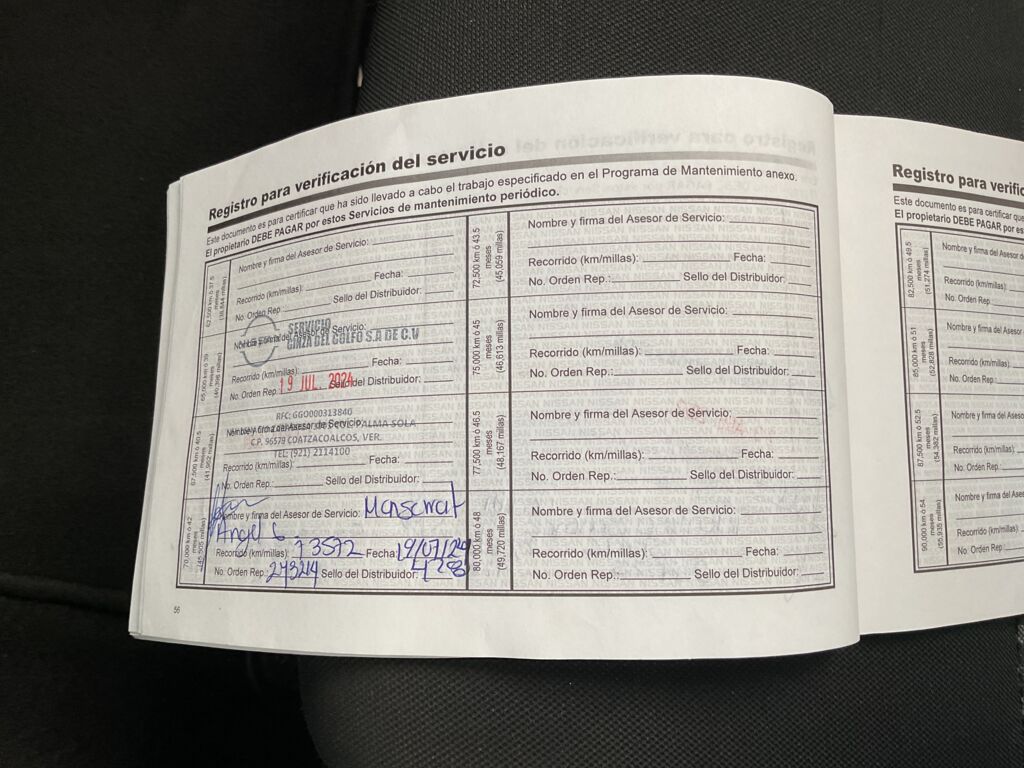 Registro para verificación del servicio
Este documento es para certificar que ha sido llevado a cabo el trabajo especificado en el Programa de Mantenimiento anexo.
El propietario DEBE PAGAR por estos Servicios de mantenimiento periódico.
62,500 km ó 37.5 meses
Nombre y firma del Asesor de Servicio:
Recorrido (km/millas): Fecha:
No. Orden Rep.: Sello del Distribuidor:
65,000 km ó 39 meses
Nombre y firma del Asesor de Servicio:
SERVICIO
GINZA DEL GOLFO S.A DE C.V
Recorrido (km/millas): Fecha:
19 JUL. 2024
No. Orden Rep. Sello del Distribuidor:
67,500 km ó 40.5 meses
RFC: GGO000313840
Nombre y firma del Asesor de Servicio:
PALMA SOLA
C.P. 96579 COATZACOALCOS, VER.
TEL: (921) 2114100
Recorrido (km/millas): Fecha:
No. Orden Rep.: Sello del Distribuidor:
70,000 km ó 42 meses
Nombre y firma del Asesor de Servicio: Monserrat
Angel G.
Recorrido (km/millas): 73572 Fecha: 19/07/24
No. Orden Rep.: 273214 Sello del Distribuidor:
72,500 km ó 43.5 meses (45,059 millas)
Nombre y firma del Asesor de Servicio:
Recorrido (km/millas): Fecha:
No. Orden Rep.: Sello del Distribuidor:
75,000 km ó 45 meses (46,613 millas)
Nombre y firma del Asesor de Servicio:
Recorrido (km/millas): Fecha:
No. Orden Rep.: Sello del Distribuidor:
77,500 km ó 46.5 meses (48,167 millas)
Nombre y firma del Asesor de Servicio:
Recorrido (km/millas): Fecha:
No. Orden Rep.: Sello del Distribuidor:
80,000 km ó 48 meses (49,720 millas)
Nombre y firma del Asesor de Servicio:
Recorrido (km/millas): Fecha:
No. Orden Rep.: Sello del Distribuidor:
56
Registro para verific
Este documento es para certificar que
El propietario DEBE PAGAR por es
82,500 km ó 49.5 meses (51,274 millas)
Nombre y firma del Asesor d
Recorrido (km/millas):
No. Orden Rep.:
85,000 km ó 51 meses (52,828 millas)
Nombre y firma del Asesor
Recorrido (km/millas):
No. Orden Rep.:
87,500 km ó 52.5 meses (54,382 millas)
Nombre y firma del Ases
Recorrido (km/millas):
No. Orden Rep.:
90,000 km ó 54 meses (55,935 millas)
Nombre y firma del Ase
Recorrido (km/millas):
No. Orden Rep.: